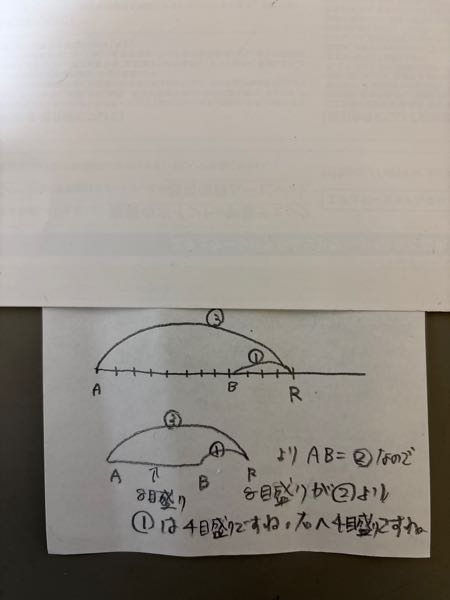 ③
①
A B R
③
①
A B R
より AB=②なので
8目盛り 8目盛りが②より
①は4目盛りですね。右へ4目盛りですね。